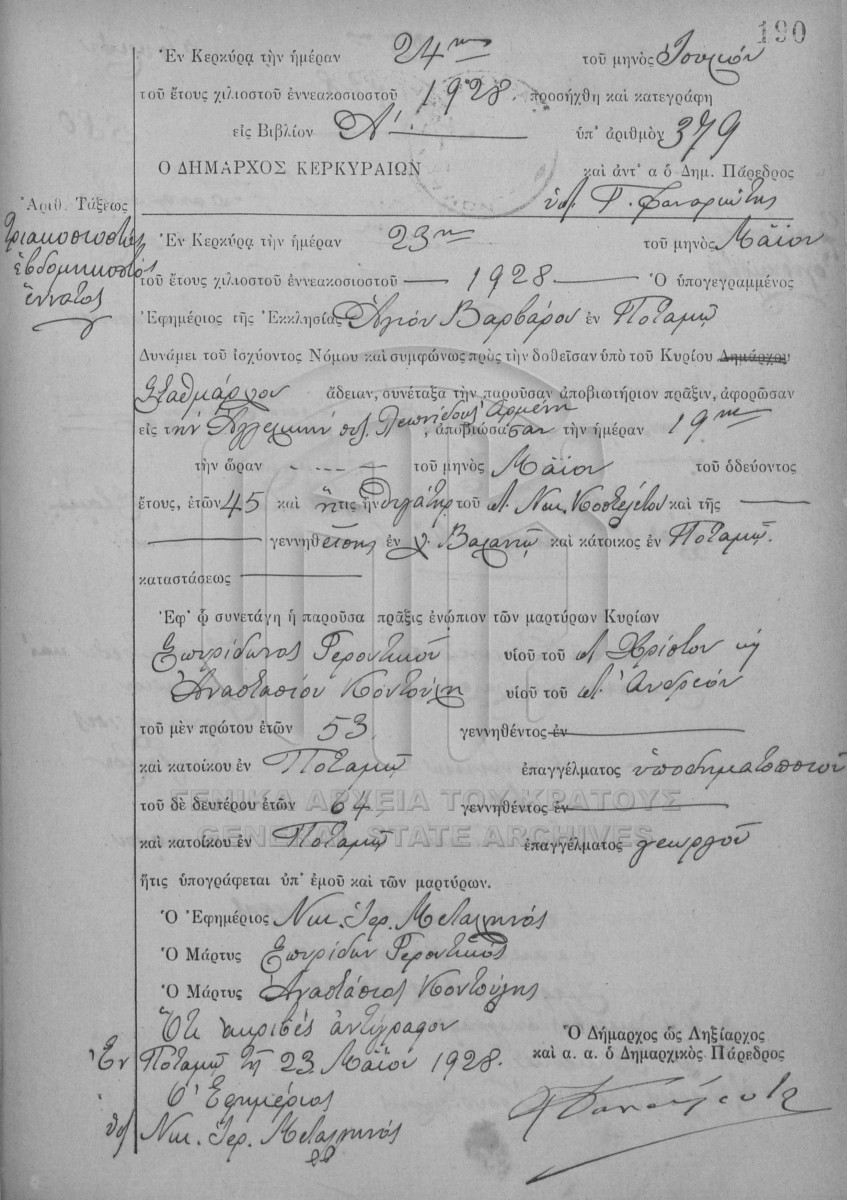 190
Ἐν Κερκύρᾳ τὴν ἡμέραν 24ην τοῦ μηνὸς Ἰουνίου
τοῦ ἔτους χιλιοστοῦ ἐννεακοσιοστοῦ 1928. προσήχθη καὶ κατεγράφη
εἰς Βιβλίον Α΄. ὑπ' ἀριθμὸν 379
Ο ΔΗΜΑΡΧΟΣ ΚΕΡΚΥΡΑΙΩΝ καὶ ἀντ' α ὁ Δημ. Πάρεδρος
Ἀριθ. Τάξεως
Τριακοσιοστὸς
ἑβδομηκοστὸς
ἔννατος
Ἐν Κερκύρᾳ τὴν ἡμέραν 23ην τοῦ μηνὸς Μαΐου
τοῦ ἔτους χιλιοστοῦ ἐννεακοσιοστοῦ — 1928 — Ὁ ὑπογεγραμμένος
Ἐφημέριος τῆς Ἐκκλησίας Ἁγίου Βαρβάρου ἐν Ποταμῷ
Δυνάμει τοῦ ἰσχύοντος Νόμου καὶ συμφώνως πρὸς τὴν δοθεῖσαν ὑπὸ τοῦ Κυρίου Δημάρχου
Σταθμάρχου ἄδειαν, συνέταξα τὴν παροῦσαν ἀποβιωτήριον πρᾶξιν, ἀφορῶσαν
εἰς τὴν Ἀγγελικὴν συζ. Λεωνίδους Ἀρμένη, ἀποβιώσασαν τὴν ἡμέραν 19ην
τὴν ὥραν - - - - τοῦ μηνὸς Μαΐου τοῦ ὁδεύοντος
ἔτους, ἐτῶν 45 καὶ ἥτις ἦν θυγάτηρ τοῦ Νικ. καὶ τῆς —
— γεννηθείσης ἐν χ. καὶ κάτοικος ἐν Ποταμῷ.
καταστάσεως —
Ἐφ' ᾧ συνετάγη ἡ παροῦσα πρᾶξις ἐνώπιον τῶν μαρτύρων Κυρίων
Σπυρίδωνος Γεροντικοῦ υἱοῦ τοῦ Χρίστου κ
Ἀναστασίου Κοντούλη υἱοῦ τοῦ Ἀνδρέου
τοῦ μὲν πρώτου ἐτῶν 53. γεννηθέντος ἐν —
καὶ κατοίκου ἐν Ποταμῷ ἐπαγγέλματος ὑποδηματοποιοῦ
τοῦ δὲ δευτέρου ἐτῶν 64 γεννηθέντος ἐν —
ΓΕΝΙΚΑ ΑΡΧΕΙΑ ΤΟΥ ΚΡΑΤΟΥΣ
GENERAL STATE ARCHIVES
καὶ κατοίκου ἐν Ποταμῷ ἐπαγγέλματος γεωργοῦ
ἥτις ὑπογράφεται ὑπ' ἐμοῦ καὶ τῶν μαρτύρων.
Ὁ Ἐφημέριος Νικ. Ἱερ. Μεταλληνός
Ὁ Μάρτυς Σπυρίδων Γεροντικός
Ὁ Μάρτυς Ἀναστάσιος Κοντούλης
Ὅτι ἀκριβές ἀντίγραφον
Ἐν Ποταμῷ τῇ 23 Μαΐου 1928.
Ὁ Ἐφημέριος
Νικ. Ἱερ. Μεταλληνός
Ὁ Δήμαρχος ὡς Ληξίαρχος
καὶ α. α. ὁ Δημαρχικὸς Πάρεδρος